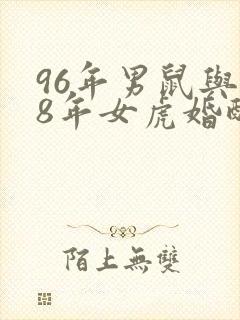 96年男鼠與
8年女虎婚配
陌上無雙